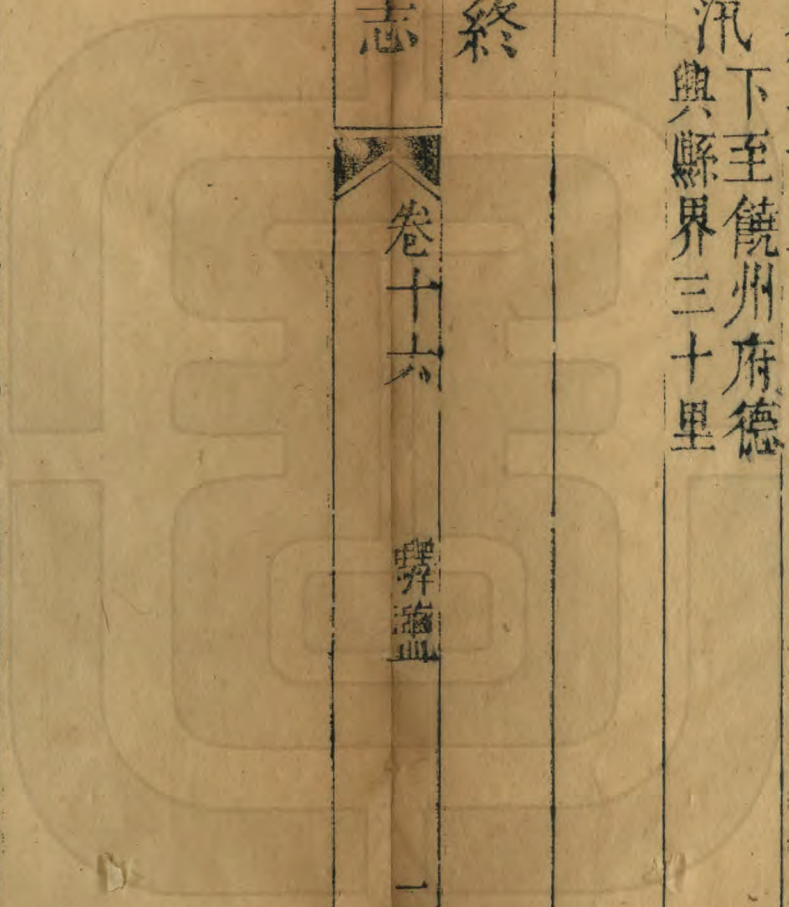 汛
下至饒州府德
興縣界三十里
終
志
卷十六
驛鹽
一